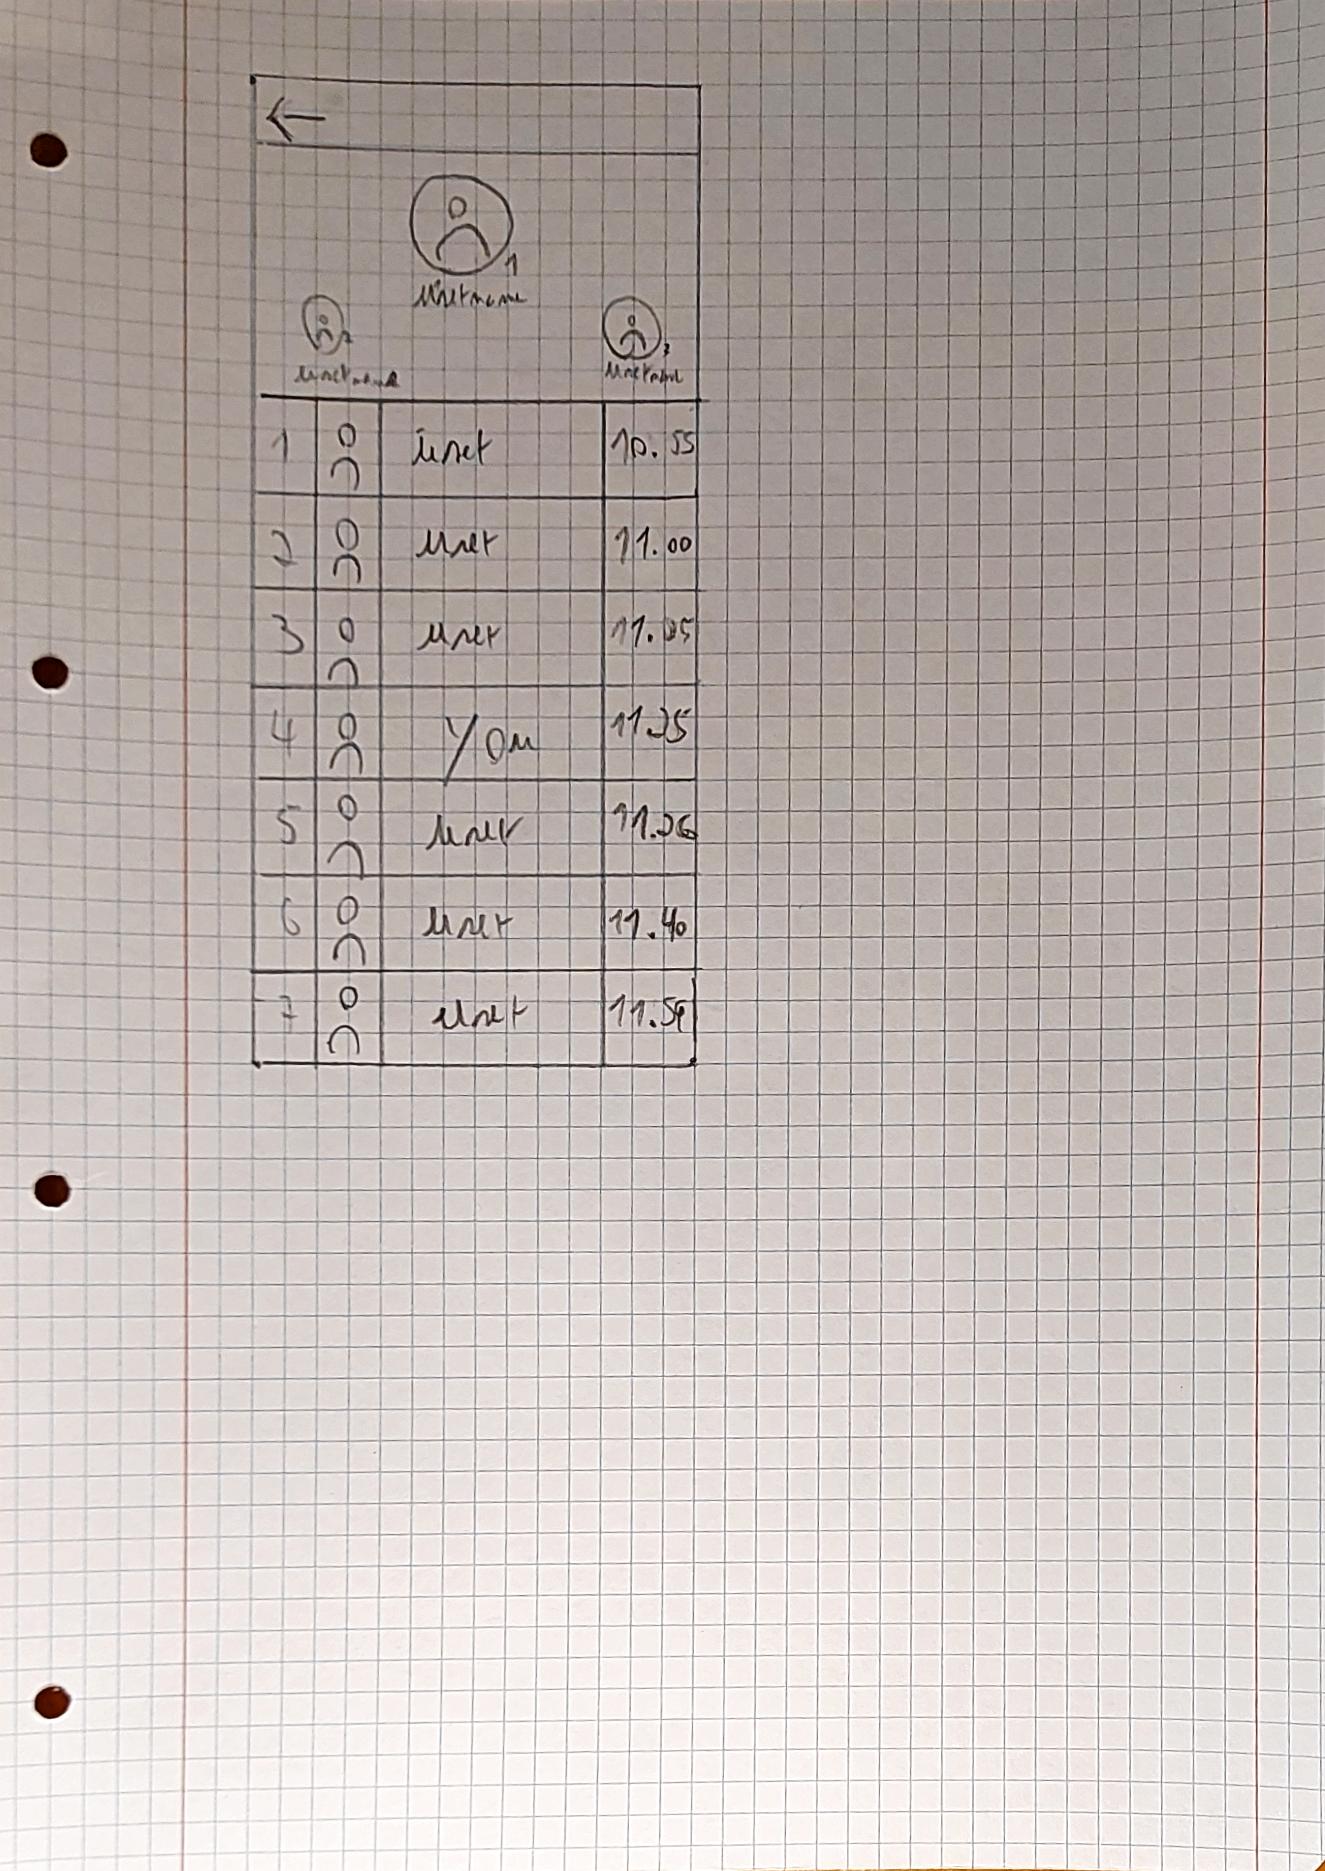 ←
1
Username
2
3
Username
Username
1 User 10.55
2 User 11.00
3 User 11.05
4 You 11.25
5 User 11.26
6 User 11.40
7 User 11.59